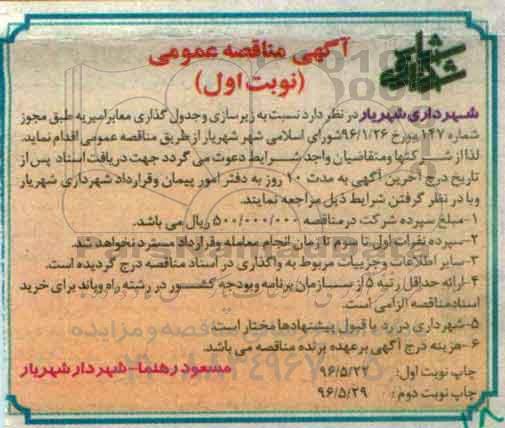 آگهی مناقصه عمومی
(نوبت اول)
شهرداری شهریار در نظر دارد نسبت به زیرسازی وجدول گذاری معابر امیریه طبق مجوز
شماره ۱۴۷ مورخ ۹۶/۱/۲۶ شورای اسلامی شهر شهریار از طریق مناقصه عمومی اقدام نماید.
لذا از شرکتها ومتقاضیان واجد شرایط دعوت می گردد جهت دریافت اسناد پس از
تاریخ درج آخرین آگهی به مدت ۱۰ روز به دفتر امور پیمان وقرارداد شهرداری شهریار
وبا در نظر گرفتن شرایط ذیل مراجعه نمایند.
۱-مبلغ سپرده شرکت در مناقصه ۵۰۰/۰۰۰/۰۰۰ ریال می باشد.
۲-سپرده نفرات اول تا سوم تا زمان انجام معامله وقرارداد مسترد نخواهد شد.
۳-سایر اطلاعات وجزییات مربوط به واگذاری در اسناد مناقصه درج گردیده است.
۴-ارائه حداقل رتبه ۵ از سازمان برنامه وبودجه کشور در رشته راه وباند برای خرید
اسناد مناقصه الزامی است.
۵-شهرداری در رد یا قبول پیشنهادها مختار است.
۶-هزینه درج آگهی بر عهده برنده مناقصه می باشد.
چاپ نوبت اول: ۹۶/۵/۲۲ مسعود رهنما-شهردار شهریار
چاپ نوبت دوم: ۹۶/۵/۲۹